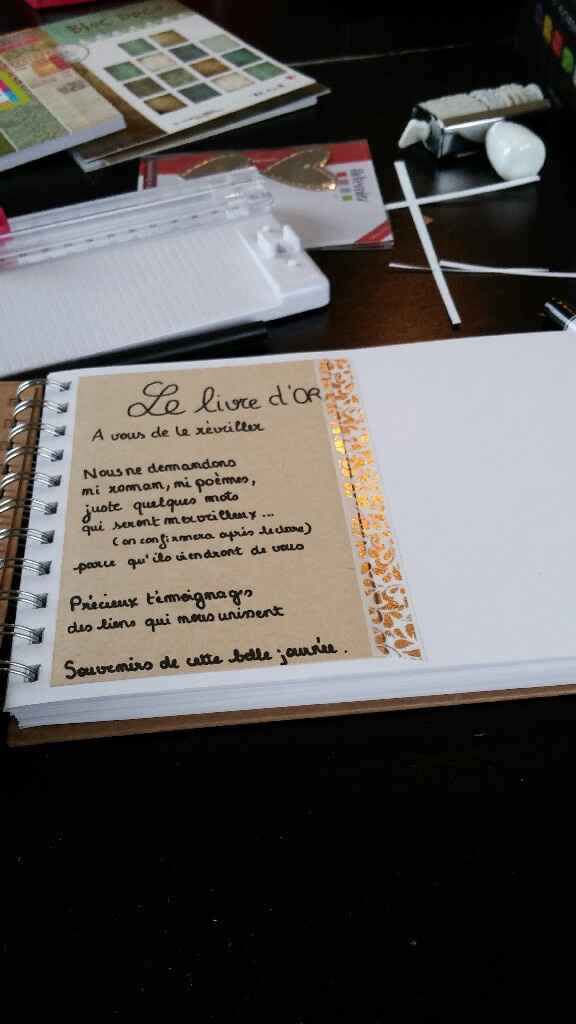 BLOC DECO
Le livre d'OR
A vous de le réveiller
Nous ne demandons
ni roman, ni poèmes,
juste quelques mots
qui seront merveilleux ...
(on confirmera après lecture)
parce qu'ils viendront de vous
Précieux témoignages
des liens qui nous unissent
Souvenirs de cette belle journée.